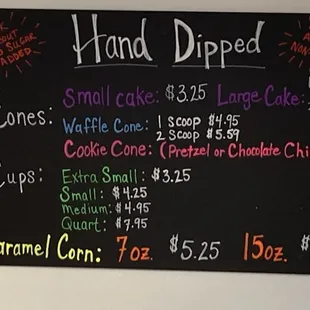 Hand Dipped
OUT
NO SUGAR
ADDED
Small cake: $3.25 Large Cake:
Cones:
Waffle Cone: 1 Scoop $4.95
2 Scoop $5.59
Cookie Cone: (Pretzel or Chocolate Chi
Cups:
Extra Small: $3.25
Small: $4.25
medium: $4.95
Quart: $7.95
aramel Corn: 7oz. $5.25 15oz. $